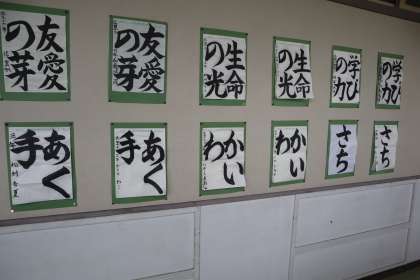 友愛
の芽
友愛
の芽
生命
の光
生命
の光
学び
の力
学び
の力
あく
手
あく
手
かい
わ
かい
わ
さち
さち